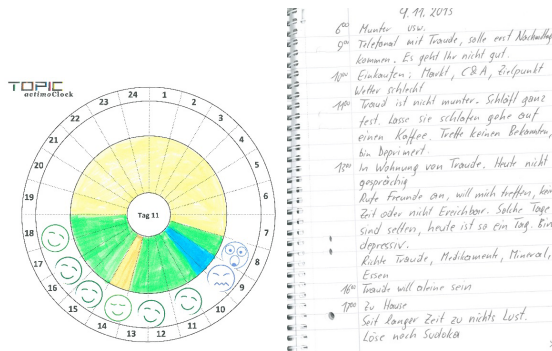 TOPIC
actimoClock
24
1
2
3
4
5
6
7
8
9
10
11
12
13
14
15
16
17
18
19
20
21
22
23
Tag 11
9.11.2015
6⁰⁰ Munter usw.
9⁰⁰ Telefonat mit Traude, solle erst Nachmittag
kommen. Es geht ihr nicht gut.
Einkaufen: Markt, C&A, Zielpunkt
Wetter schlecht
Traud ist nicht munter. Schläft ganz
fest. Lasse sie schlafen gehe auf
einen Kaffee. Treffe keinen Bekannten,
bin Deprimert.
15⁰⁰ In Wohnung von Traude. Heute nicht
gesprächig
Rufe Freunde an, will mich treffen,
Zeit oder nicht Erreichbar. Solche Tage
sind selten, heute ist so ein Tag. Bin
depressiv.
Richte Traude, Medikamente, Mineral,
Essen
16⁰⁰ Traude will aleine sein
17⁰⁰ Zu Hause
Seit langer Zeit zu nichts Lust.
Löse noch Sudoku